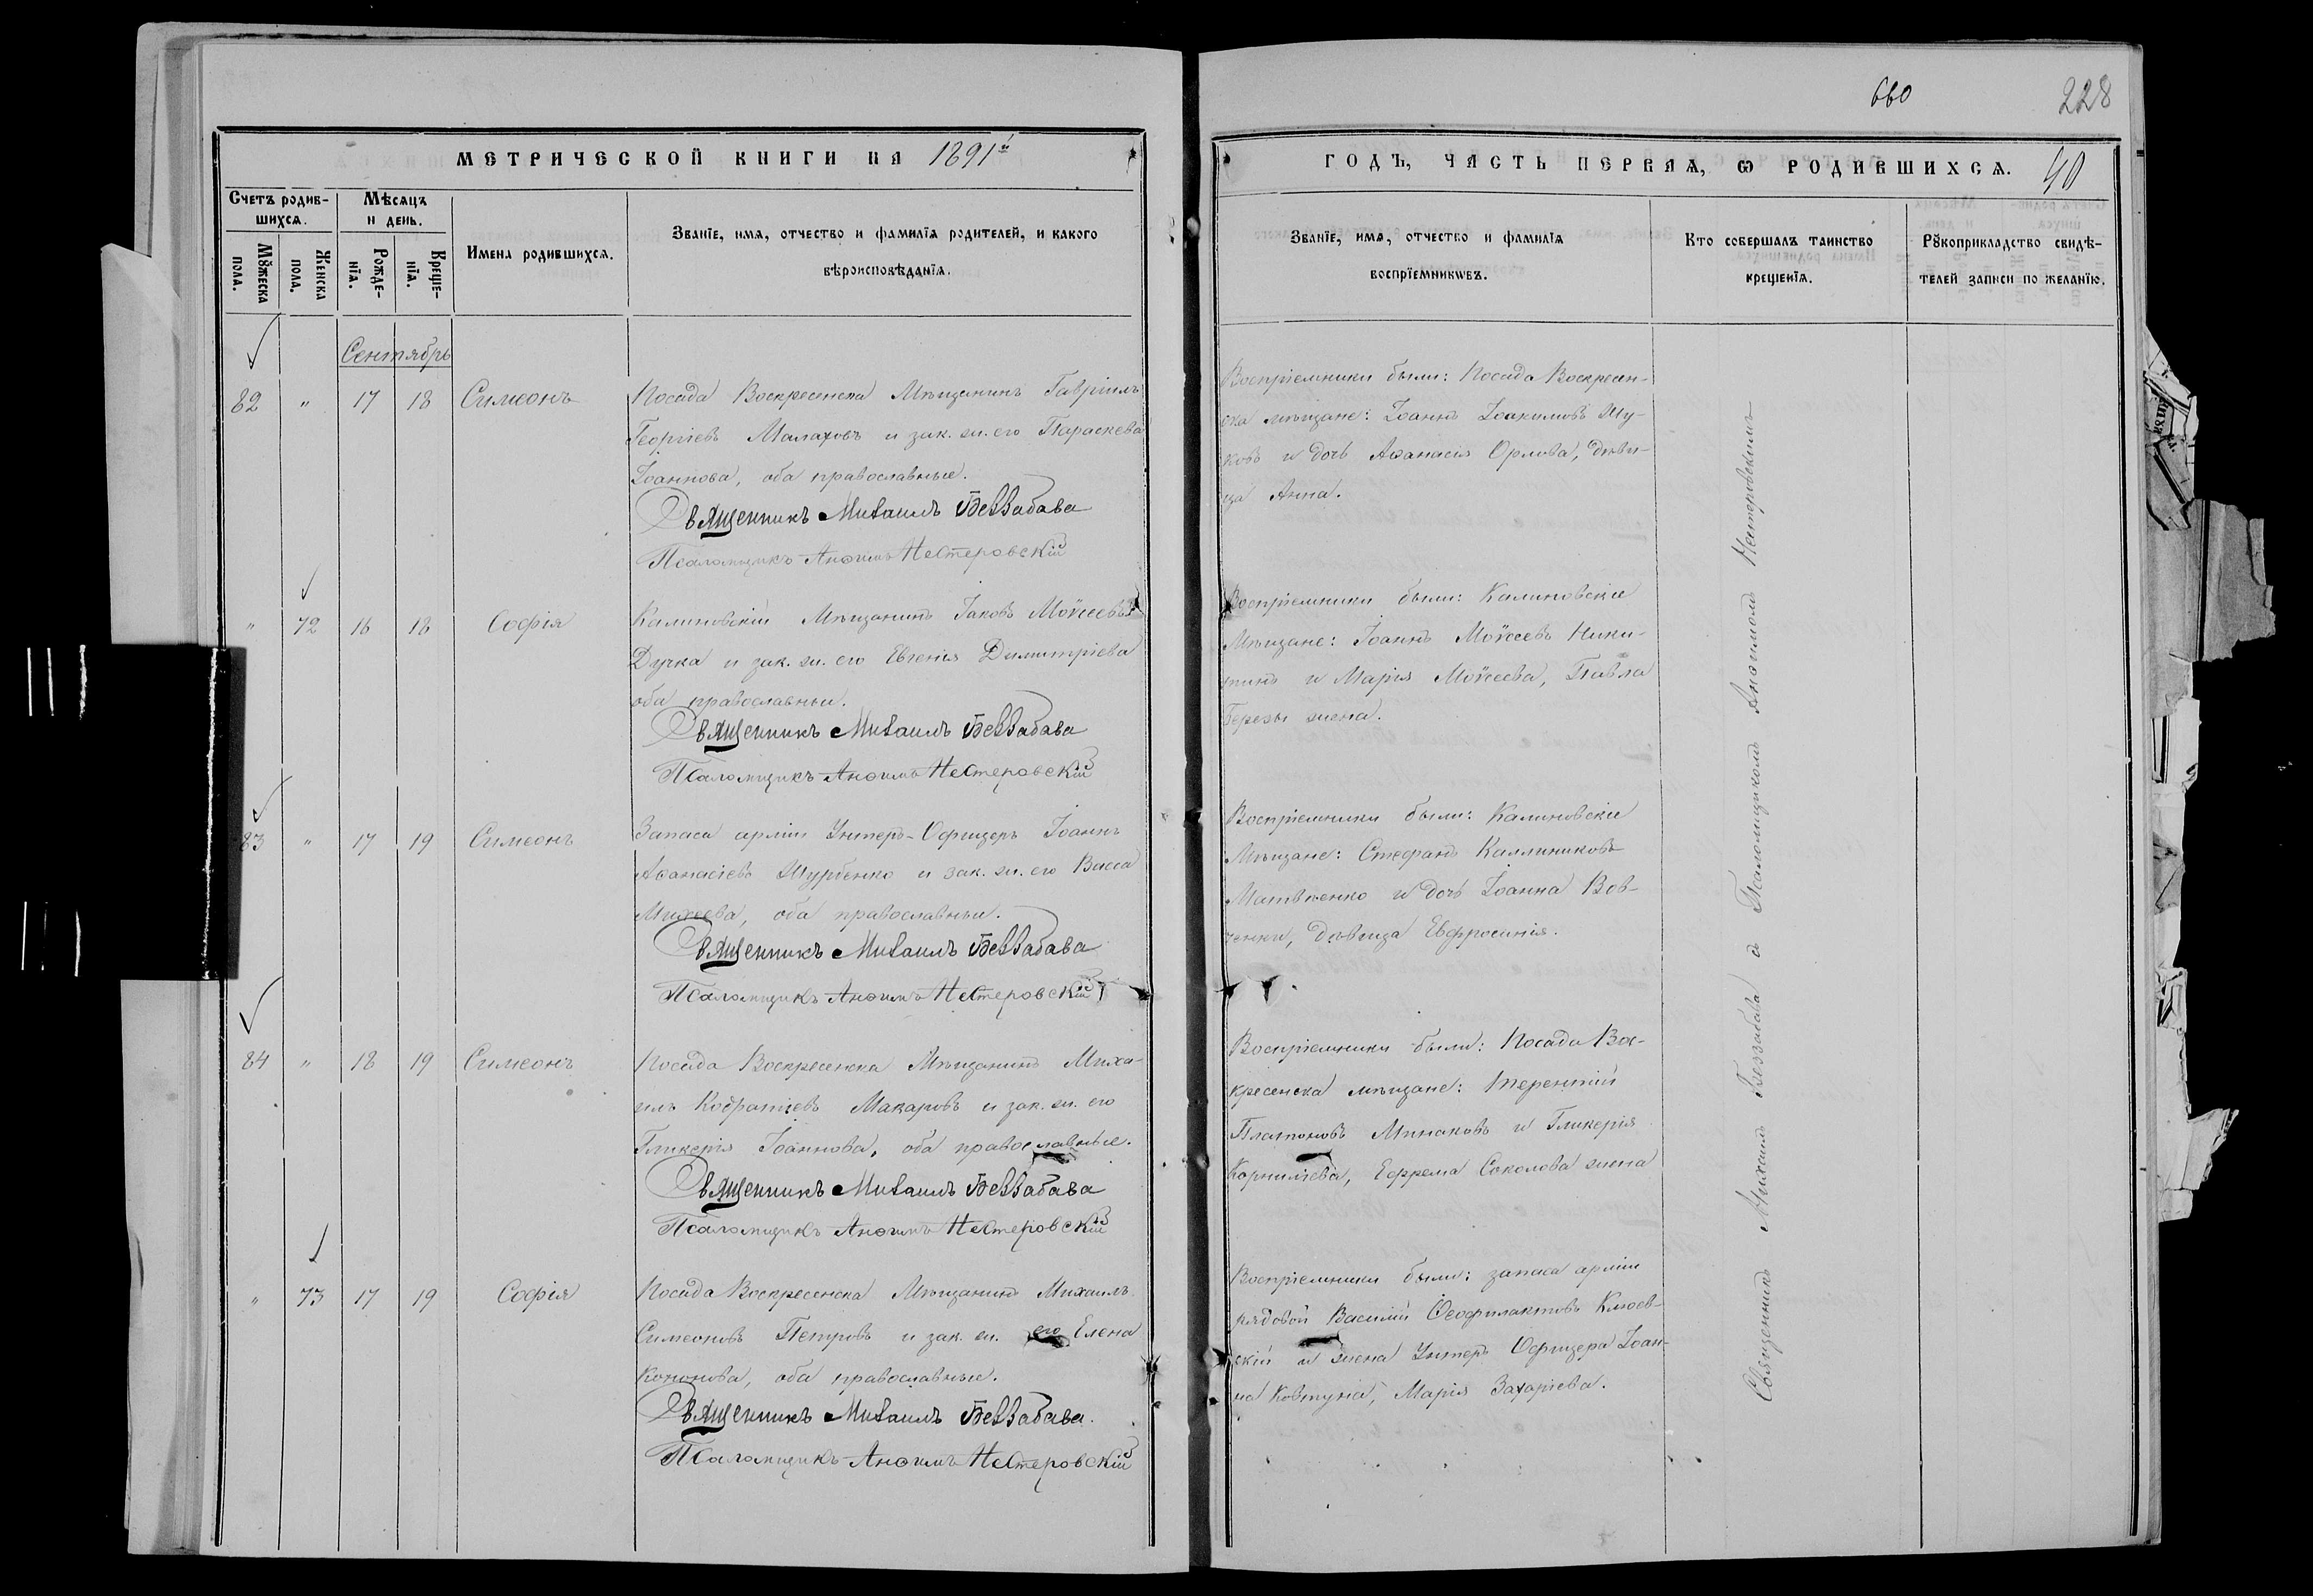 660
228
МЕТРИЧЕСКОЙ КНИГИ НА 1891й
ГОДЪ, ЧАСТЬ ПЕРВАЯ, Ѡ РОДИВШИХСѦ. 40
Счетъ родив-
шихсѧ.
Мꙋжеска пола.
Женска пола.
Мѣсѧцъ
и день.
Рожде-
нїѧ.
Креще-
нїѧ.
Имена родившихсѧ.
Званїе, имѧ, отчество и фамилїѧ родителей, и какого
вѣроисповѣданїѧ.
Званїе, имѧ, отчество и фамилїѧ
воспрїемникѡвъ.
Кто совершалъ таинство
крещенїѧ.
Рꙋкоприкладство свидѣ-
телей записи по желанїю.
Сентябрь
82 " 17 18 Симеонъ
Посада Воскресенска Мѣщанинъ Гавріилъ
Георгіевъ Малаховъ и зак. ж. его Параскева
Іоаннова, оба православные.
Священникъ Михаилъ Беззабава
Псаломщикъ Анѳимъ Нестеровскій
Воспріемники были: Посада Воскресен-
ска мѣщане: Іоаннъ Іоакимовъ Жу-
ковъ и дочь Аѳанасія Орлова, дѣви-
ца Анна.
" 72 16 18 Софія
Калиновскій Мѣщанинъ Іаковъ Моѵсеевъ
Дучка и зак. ж. его Евгенія Димитріева
оба православны.
Священникъ Михаилъ Беззабава
Псаломщикъ Анѳимъ Нестеровскій
Воспріемники были: Калиновскіе
Мѣщане: Іоаннъ Моѵсеевъ Ники-
тинъ и Марія Моѵсеева, Павла
Березы жена.
83 " 17 19 Симеонъ
Запаса арміи Унтеръ-Офицеръ Іоаннъ
Аѳанасіевъ Шурбенко и зак. ж. его Васса
Михеева, оба православны.
Священникъ Михаилъ Беззабава
Псаломщикъ Анѳимъ Нестеровскій
Воспріемники были: Калиновскіе
Мѣщане: Стефанъ Каллиниковъ
Матвѣенко и дочь Іоанна Вов-
ченки, дѣвица Евфросинія.
84 " 18 19 Симеонъ
Посада Воскресенска Мѣщанинъ Миха-
илъ Кодратіевъ Макаровъ и зак. ж. его
Гликерія Іоаннова, оба православные.
Священникъ Михаилъ Беззабава
Псаломщикъ Анѳимъ Нестеровскій
Воспріемники были: Посада Вос-
кресенска мѣщане: Терентій
Платоновъ Минаковъ и Гликерія
Корниліева, Ефрема Соколова жена
" 73 17 19 Софія
Посада Воскресенска Мѣщанинъ Михаилъ
Симеоновъ Петровъ и зак. ж. его Елена
Кононова, оба православные.
Священникъ Михаилъ Беззабава.
Псаломщикъ Анѳимъ Нестеровскій
Воспріемники были: запаса арміи
рядовой Василій Ѳеофилактовъ Клюев-
скій и жена Унтеръ Офицера Іоан-
на Ковтуна, Марія Захаріева.
Священникъ Михаилъ Беззабава съ Псаломщикомъ Анѳимомъ Нестеровскимъ